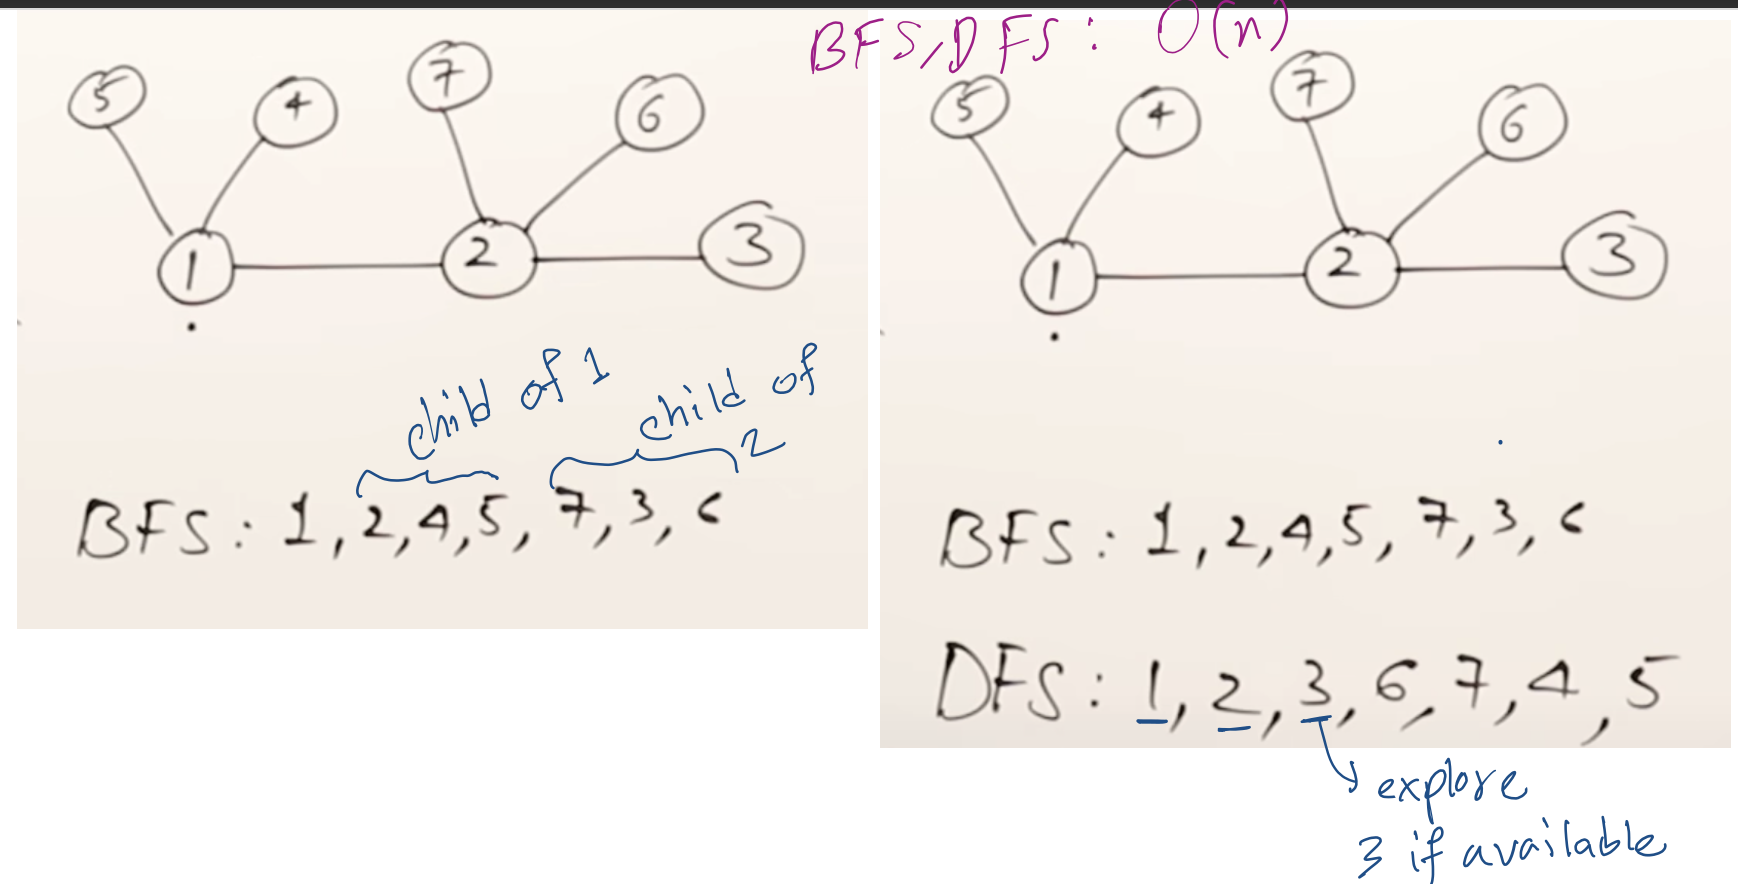 BFS, DFS: O(n)
5 4 7 6
1 2 3
child of 1
child of 2
BFS: 1, 2, 4, 5, 7, 3, 6
5 4 7 6
1 2 3
BFS: 1, 2, 4, 5, 7, 3, 6
DFS: 1, 2, 3, 6, 7, 4, 5
explore
3 if available